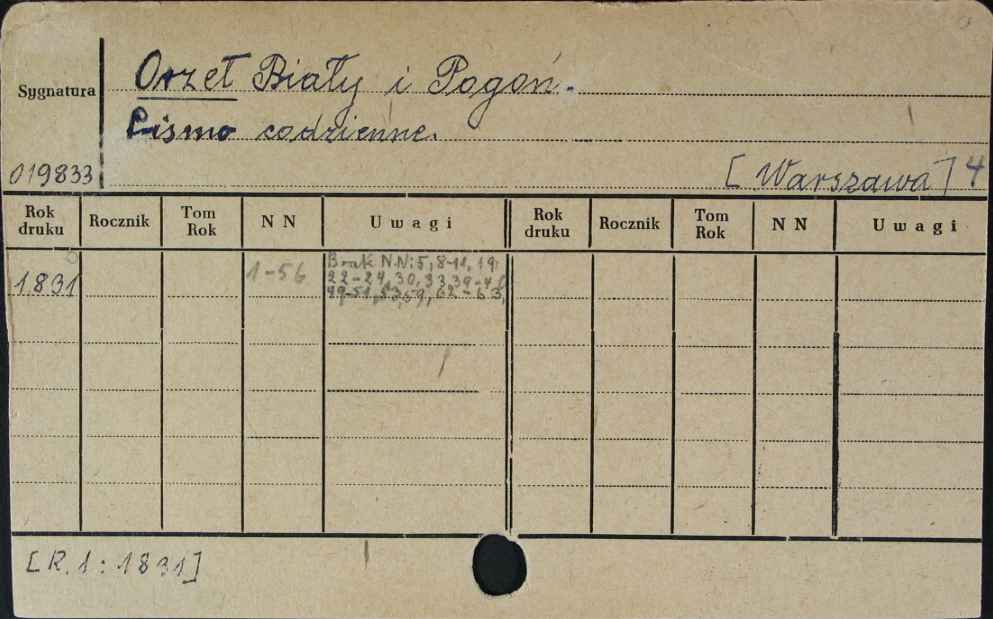 Orzeł Biały i Pogoń.
Sygnatura
Pismo codzienne.
019833
[Warszawa] 4
Rok druku Rocznik Tom Rok NN Uwagi Rok druku Rocznik Tom Rok NN Uwagi
1831 1-56 Brak NN: 5, 8-11, 19
22-24, 30, 33, 39-
49-51, 53, 59, 62-63,
[R. 1 : 1831]